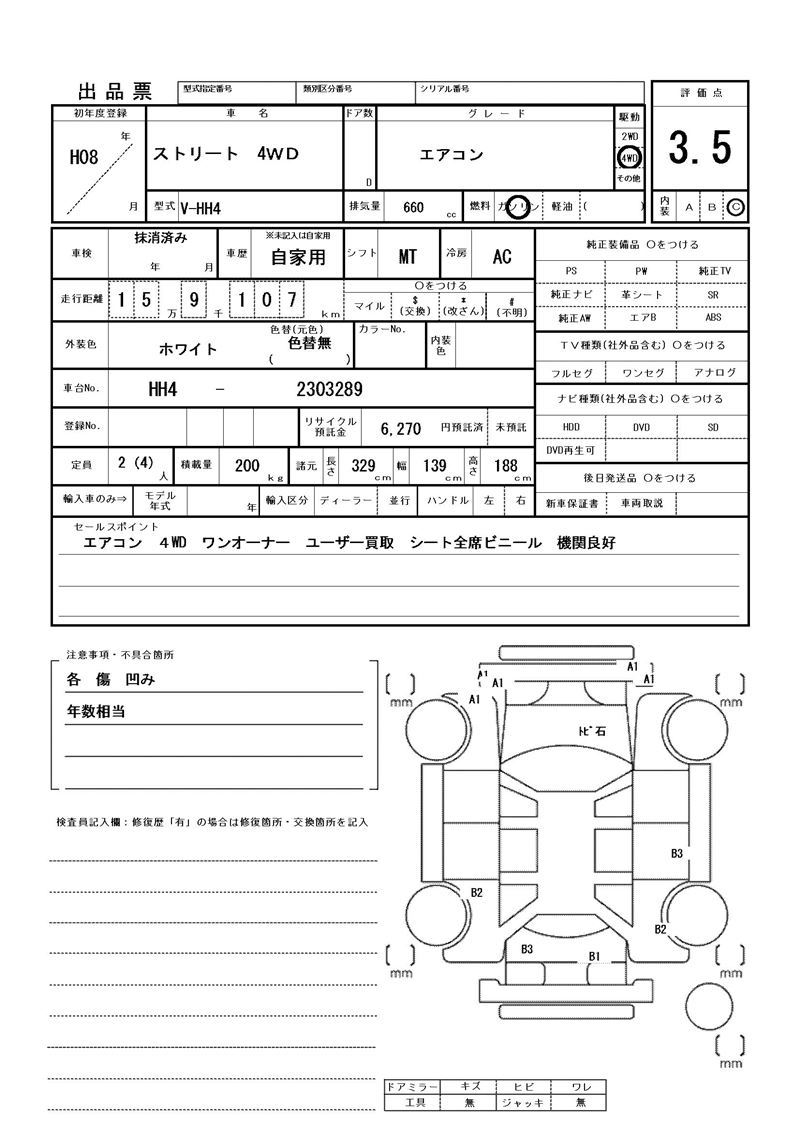 出品票
型式指定番号 類別区分番号 シリアル番号
評価点
初年度登録 車 名 ドア数 グレード 駆動
H08 年 月
ストリート 4WD
D
エアコン
2WD
4WD
その他
3.5
型式 V-HH4 排気量 660 cc 燃料 ガソリン 軽油 ( )
内装 A B C
車検 抹消済み 年 月
車歴 ※未記入は自家用 自家用
シフト MT 冷房 AC
純正装備品 ○をつける
PS PW 純正TV
純正ナビ 革シート SR
純正AW エアB ABS
走行距離 15万 9千 107 km
○をつける
マイル $(交換) *(改ざん) #(不明)
外装色 ホワイト
色替(元色) 色替無 ( )
カラーNo.
内装色
TV種類(社外品含む) ○をつける
フルセグ ワンセグ アナログ
車台No. HH4 - 2303289
ナビ種類(社外品含む) ○をつける
HDD DVD SD
DVD再生可
登録No.
リサイクル預託金 6,270 円預託済 未預託
定員 2 (4) 人 積載量 200 kg 諸元 長さ 329 cm 幅 139 cm 高さ 188 cm
後日発送品 ○をつける
新車保証書 車両取説
輸入車のみ⇒ モデル年式 年 輸入区分 ディーラー 並行 ハンドル 左 右
セールスポイント
エアコン 4WD ワンオーナー ユーザー買取 シート全席ビニール 機関良好
注意事項・不具合箇所
各 傷 凹み
年数相当
検査員記入欄:修復歴「有」の場合は修復箇所・交換箇所を記入
A1
A1
A1
A1
A1
mm
mm
トビ石
B3
B2
B2
B3
B1
mm
mm
mm
ドアミラー キズ ヒビ ワレ
工具 無 ジャッキ 無